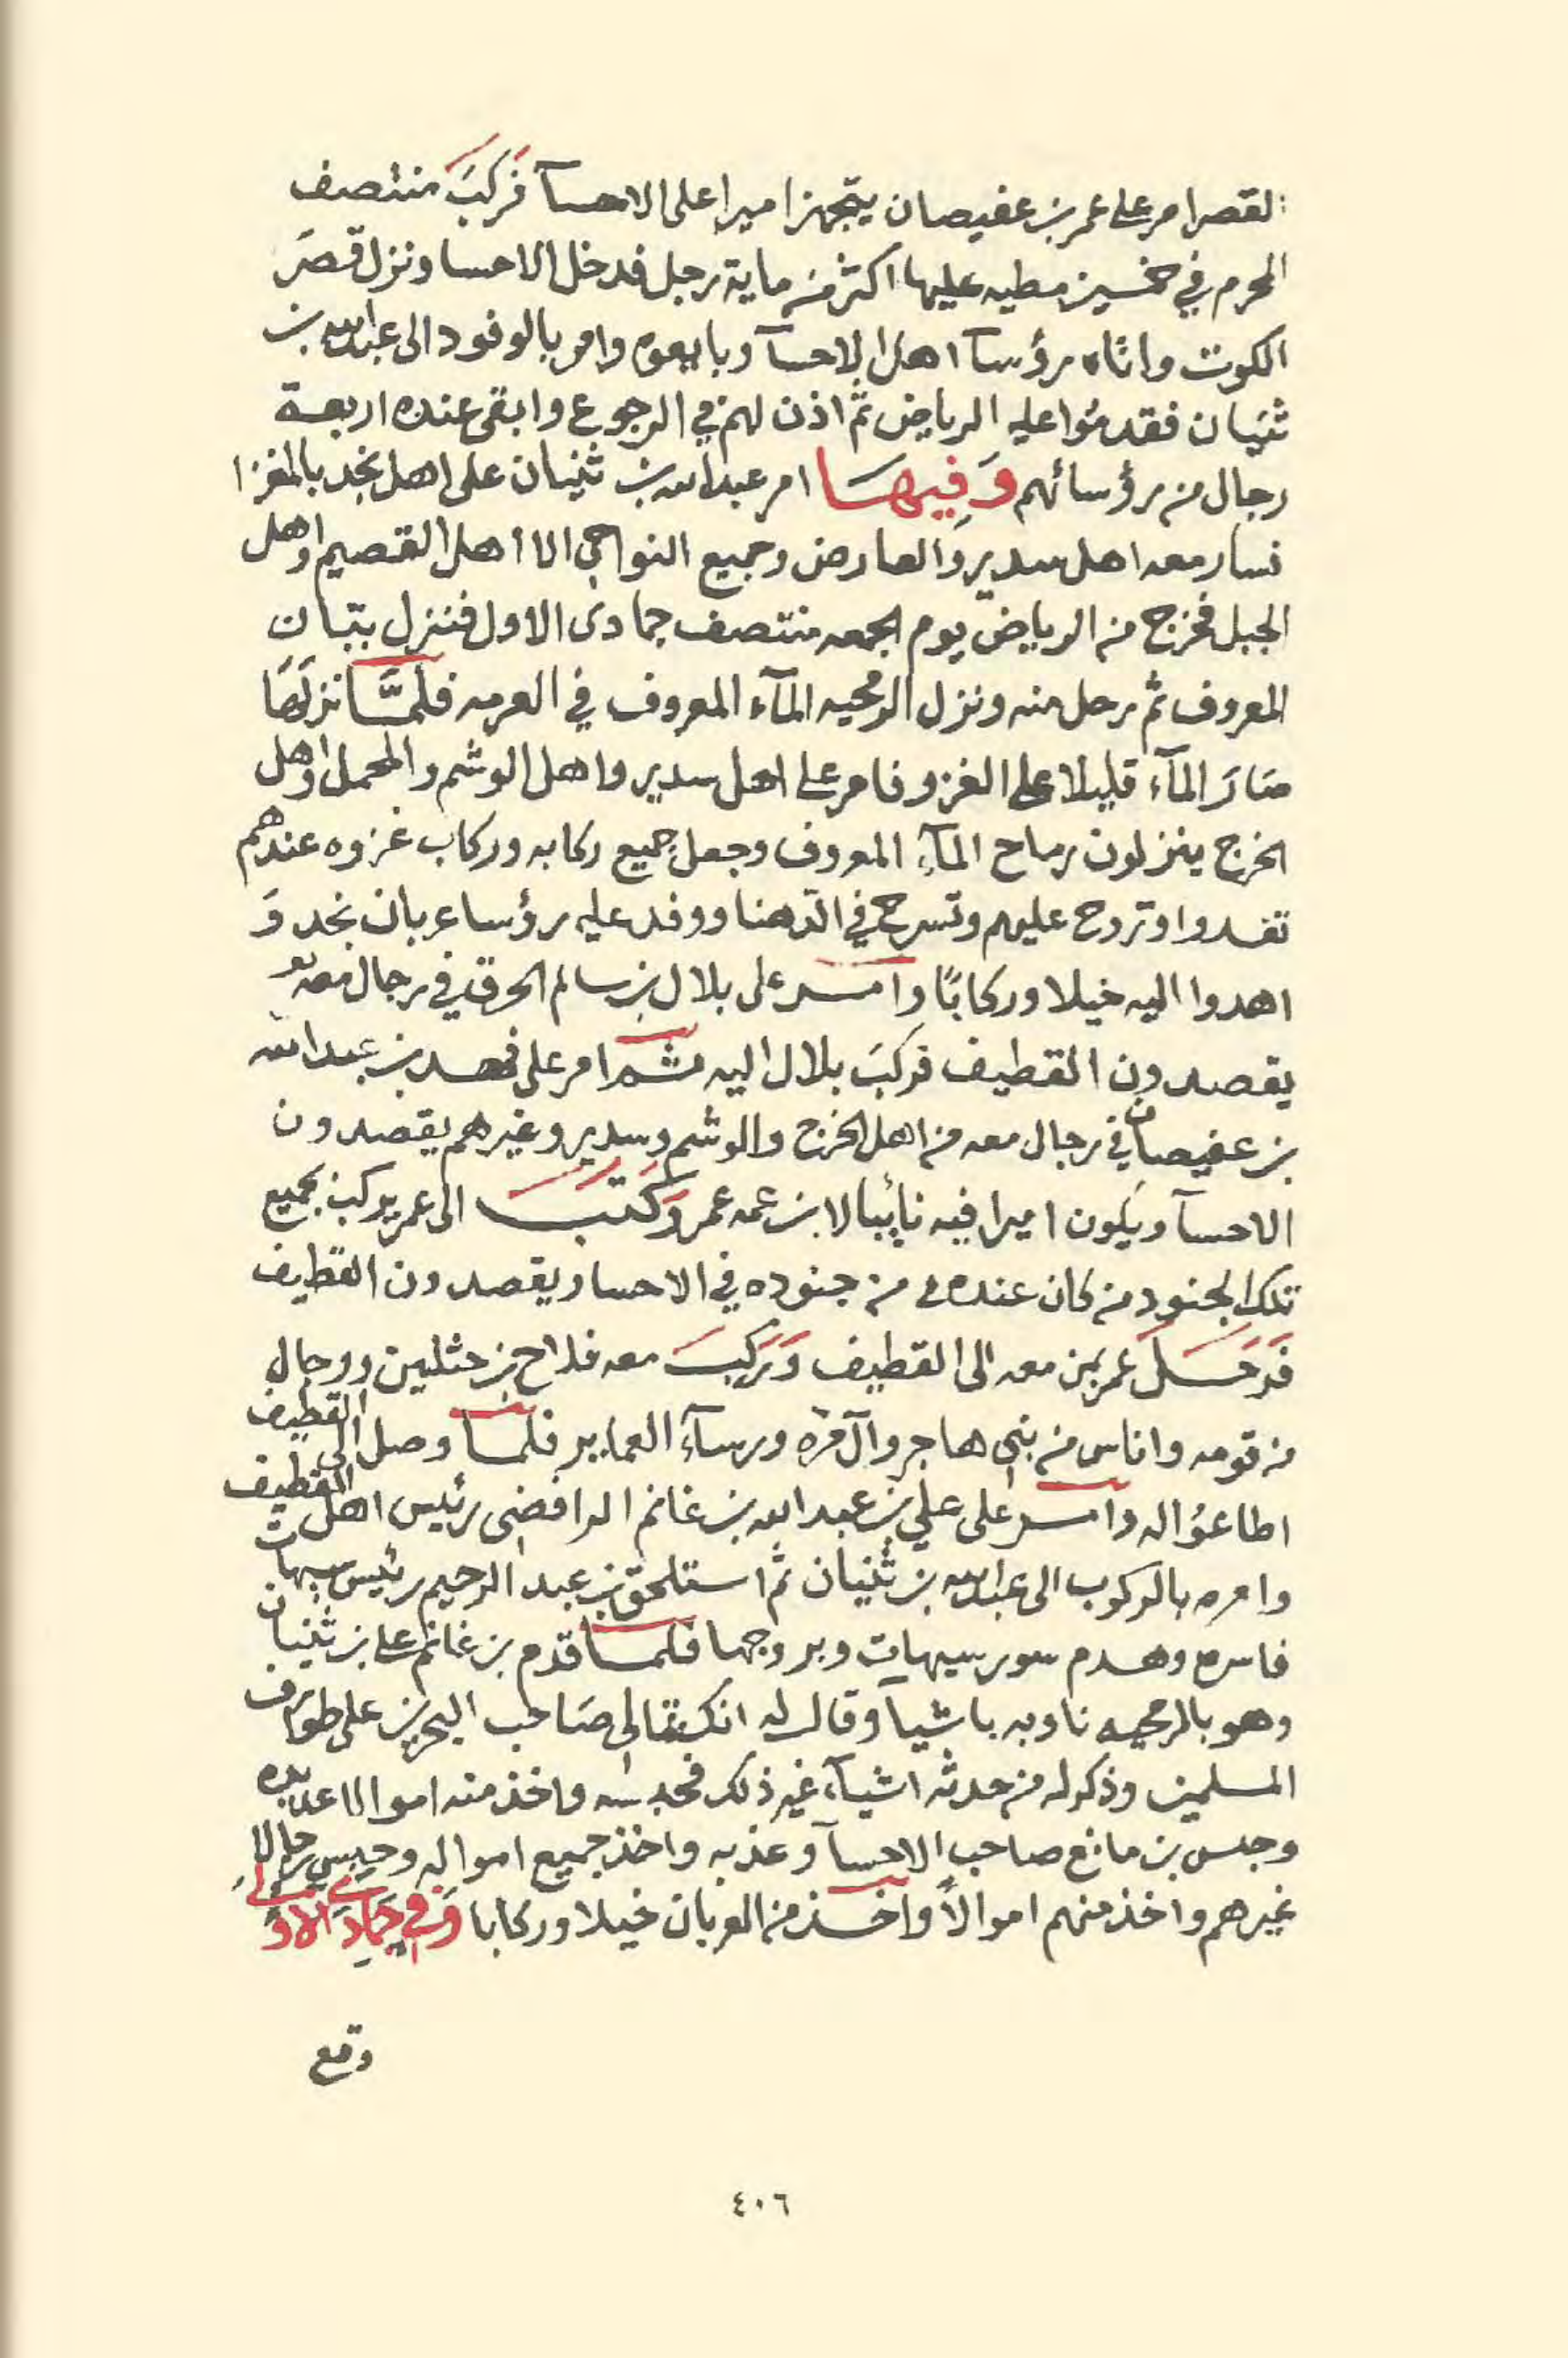 القصر امر على عمر بن عفيصان يتجهز اميرا على الاحسآ فركبَ منتصف
المحرم في خمسين مطيه عليها اكثر من ماية رجل فدخل الاحسا ونزل قصرَ
الكوت واتاه رؤسآ اهل الاحسآ وبايعوه وامر بالوفود الى عبدالله بن
ثنيان فقدمُوا عليه الرياض ثمّ اذن لهم في الرجوع وابقى عنده اربعة
رجال من رؤسائهم وَفِيهَا امر عبدالله بن ثنيان على اهل نجد بالمغزا
فسار معه اهل سدير والعارض وجميع النواحي الا اهل القصيم واهل
الجبل فخرج من الرياض يوم الجمعه منتصف جمادى الاول فنزل بنبان
المعروف ثم رحل منه ونزل الرمحيه المآء المعروف في العرمه فلمَّا نزلهَا
صَارَ المآء قليلا على الغزو فامر على اهل سدير واهل الوشم والمحمل واهل
الخرج ينزلون رماح المآء المعروف وجعل جميع ركابه وركاب غزوه عندهم
تغدوا وتروح عليهم وتسرح في الدهنا ووفد عليه رؤسا عربان نجد وَ
اهدوا اليه خيلا وركابًا وامر على بلال بن سالم الحرق في رجال معه
يقصدون القطيف فركبَ بلال اليه ثم امر على فهد بن عبدالله
بن عفيصان في رجال معه من اهل الخرج والوشم وسدير وغيرهم يقصدون
الاحسآ ويكون اميرا فيه نايبا لابن عمه عمر وَكَتبَ الى عمر يركب بجميع
تلك الجنود من كان عنده من جنوده في الاحسا ويقصدون القطيف
فَرَحَلَ عمر بمن معه الى القطيف وَرَكِبَ معه فلاح بن حثلين ورجال
من قومه واناس من بني هاجر وآل مره ورسآء العماير فلما وصل الى القطيف
اطاعوا له وامر على علي بن عبدالله بن غانم الرافضى رئيس اهل القطيف
وامره بالركوب الى عبدالله بن ثنيان ثم استلحق بن عبد الرحيم رئيس سيهات
فاسره وهدم سور سيهات وبروجها فلما قدم بن غانم على بن ثنيان
وهو بالرمحيه ناوبه باشيآ وقال له انك تمالى صَاحب البحرين على طوارف
المسلمين وذكر له من حدثه اشيآء غير ذلك فحبسه واخذ منه اموالا عديده
وحبس بن مانع صاحب الاحسآ وعذبه واخذ جميع امواله وحبس رجالا
غيرهم واخذ منهم اموالاً واخذ من العربان خيلا وركابا وَفي جمادى الاولى
وقع
٤٠٦